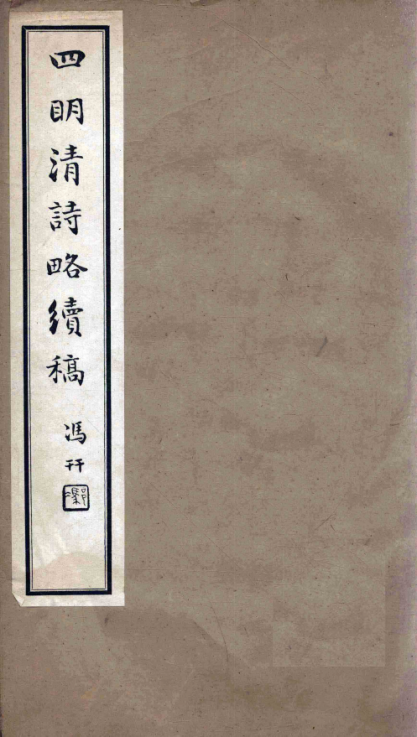 四明清詩略續稿
馮幵